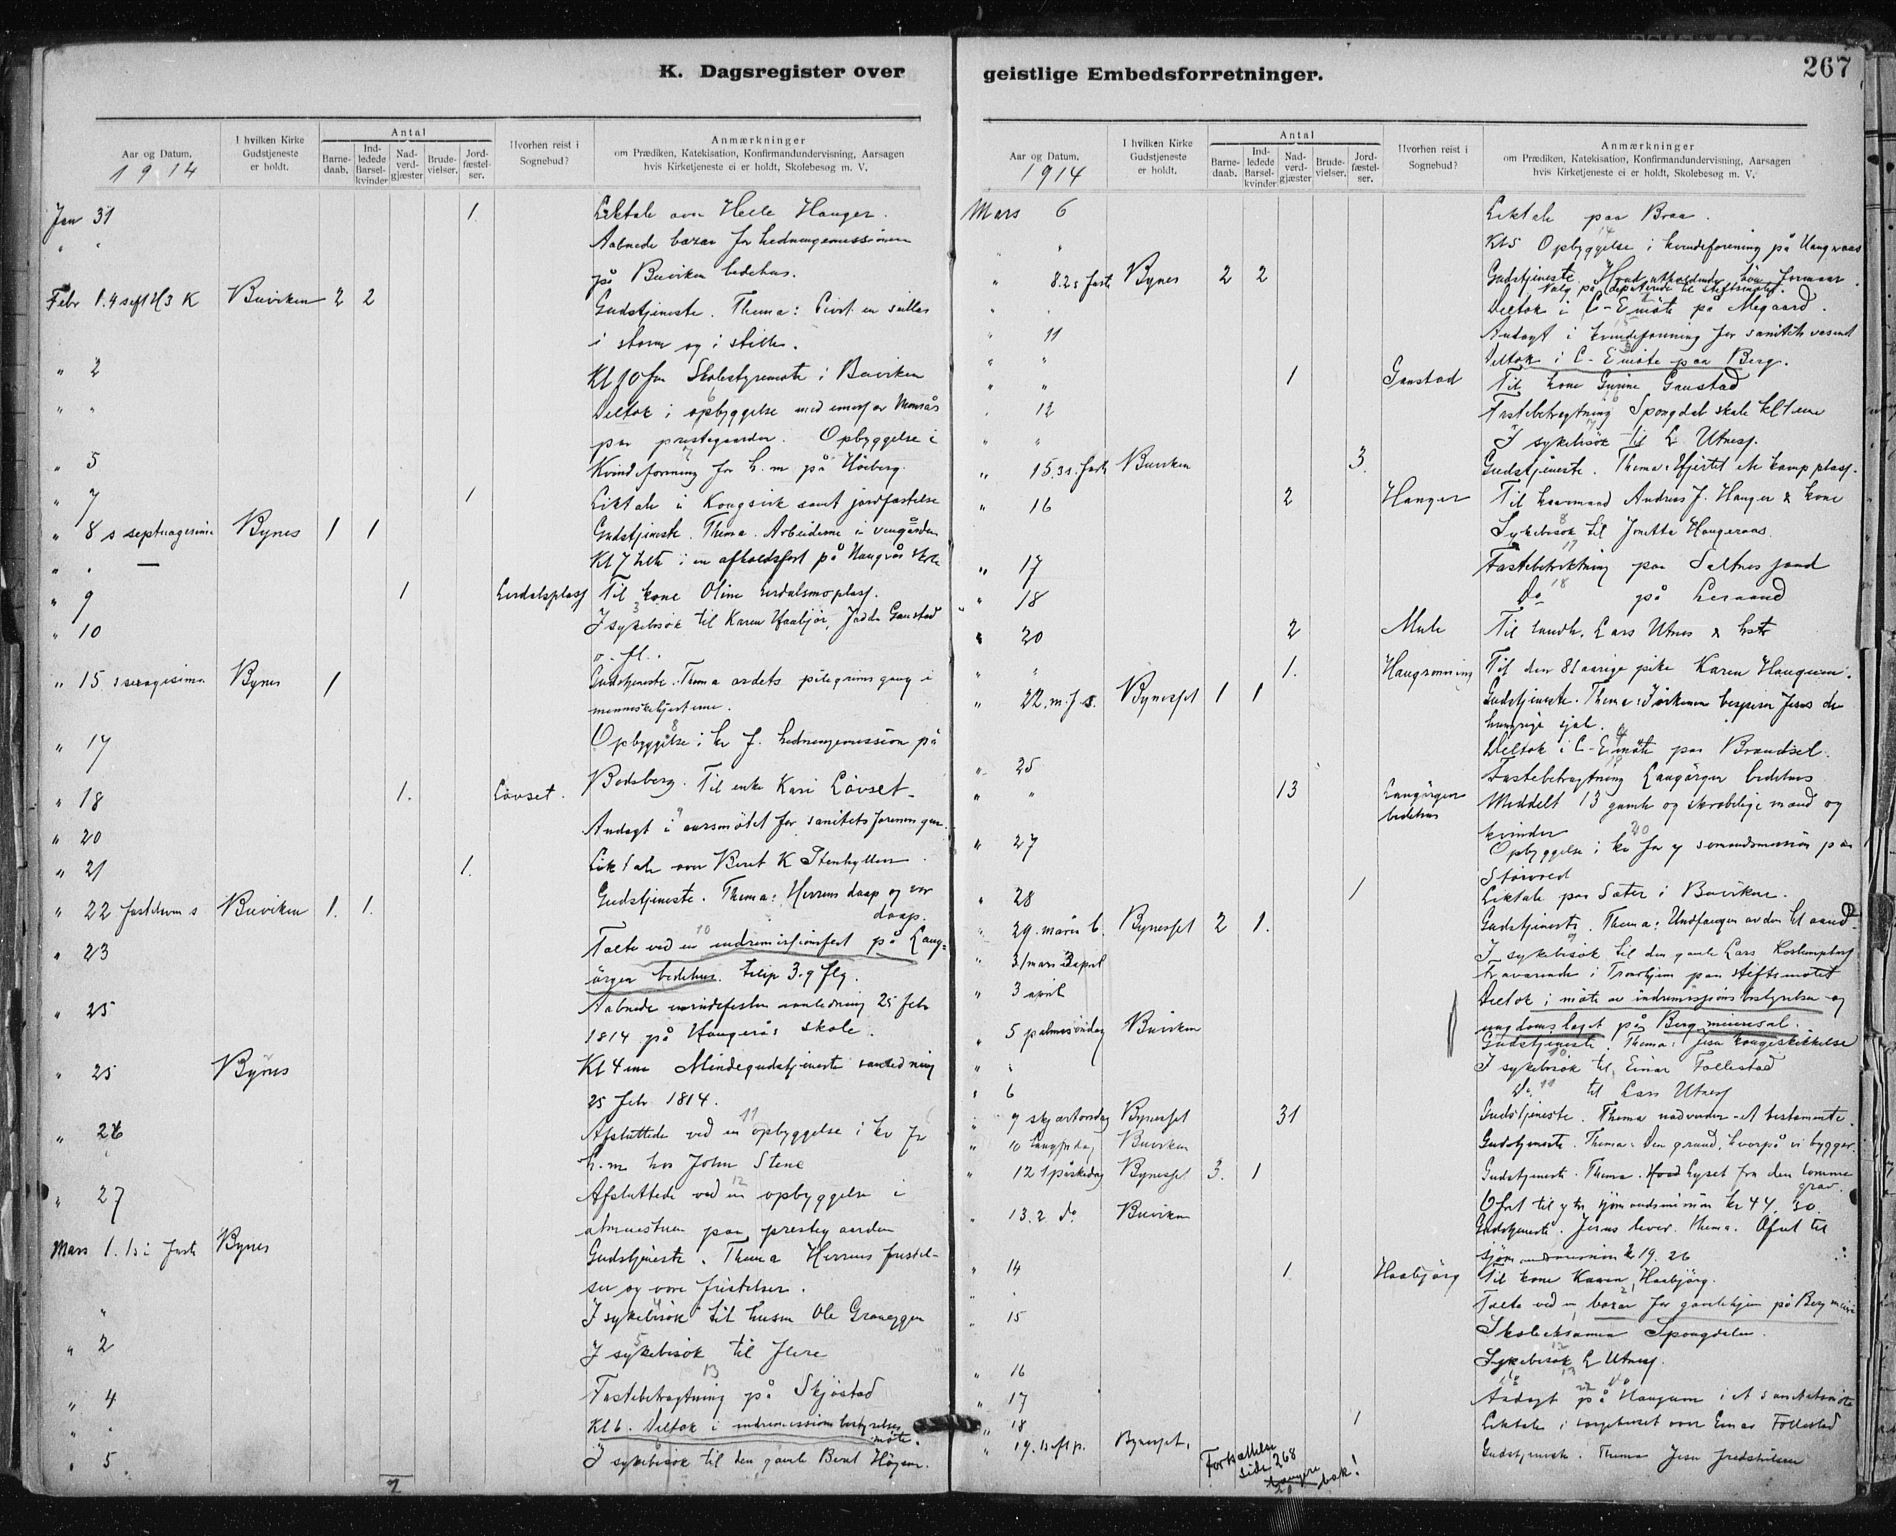 K. Dagsregister over
Aar og Datum,
1914
I hvilken Kirke Gudstjeneste er holdt.
Antal
Barnedaab.
Indledede Barselkvinder
Nadverdgjæster
Brudevielser.
Jordfæstelser.
Hvorhen reist i Sognebud?
Anmærkninger
om Prædiken, Katekisation, Konfirmandundervisning, Aarsagen
hvis Kirketjeneste ei er holdt, Skolebesøg m. V.
Jan 31 1. Liktale over Hauger.
" " Aabnede bazar for hedningemissionen
på Buviken bedehus.
Febr 1. 4 s eft H 3 K Buviken 2 2 Gudstjeneste. Thema: en seilas
i storm og i stille.
" 2 Kl 10 fm Skolestyremøte i Buviken
" " Deltok i opbyggelse med
paa prestegaarden. Opbyggelse i
" 5 Kvindeforening for h. m. på Höiberg.
" 7 1 Liktale i Kongsvik samt jordfæstelse
" 8 s septuagesima Bynes 1 1 Gudstjeneste. Thema. Arbeiderne i vingården
" " Kl 7 i en afholdsfest på Haugrås skole
" 9 1 Lerdalsplass Til kone Oline Lerdalsmoplass.
" 10 I sykebesök til Karen Haabjör, Gaustad
o. fl.
" 15 s sexagesima Bynes 1 Gudstjeneste. Thema ordets pilegrimsgang i
menneskehjerterne.
" 17 Opbyggelse i kv f. hedningemission på
Bodsberg. Til enke Kari Lövset.
" 18 1. Lövset.
" 20 Andagt i aarsmötet for sanitetsforeningen.
" 21 1. Liktale over Beret K Stenhyllen
" 22 fastelavns s Buviken 1. 1. Gudstjeneste. Thema: Herrens daap og vor
daap.
" 23 Talte ved en indremissionsfest på Laug-
örgen bedehus. Filip 3. 9 flg.
" 25 Aabnede mindefesten anledning 25 febr
1814 på Haugerås skole.
" 25 Bynes Kl 4 em Mindegudstjeneste anledning
25 febr 1814.
" 26 Afsluttede ved en opbyggelse i kv for
h. m hos John Stene
" 27 Afsluttede ved en opbyggelse i
paa prestegaarden
Mars 1. 1 s i faste Bynes Gudstjeneste. Thema Herrens fristel-
ser og vore fristelser.
" I sykebesök til husm Ole Graneggen
" 2 I sykebesök til flere
" 4 Fastebetragtning på Skjöstad
" " Kl 6. Deltok i indremissionsbestyrelses
möte.
" 5 I sykebesök til den gamle Berit Högsen.
2
geistlige Embedsforretninger.
267
Aar og Datum,
1914
I hvilken Kirke Gudstjeneste er holdt.
Antal
Barnedaab.
Indledede Barselkvinder
Nadverdgjæster
Brudevielser.
Jordfæstelser.
Hvorhen reist i Sognebud?
Anmærkninger
om Prædiken, Katekisation, Konfirmandundervisning, Aarsagen
hvis Kirketjeneste ei er holdt, Skolebesøg m. V.
Mars 6 Liktale paa Braa.
" Kl 5 Opbyggelse i kvindeforening på Haugraas
" 8. 2 s faste Bynes 2 2 Gudstjeneste. bön
Valg på deputerede til stiftsmötet.
" " Deltok i C-E möte på Megaard.
" 11 Andagt i kvindeforening for sanitetsvæsenet
" " Deltok i C-E möte paa Berg.
" " 1 Gaustad Til kone Gurine Gaustad
" 12 Fastebetragtning Spongdal skole
" " I sykebesök til L Utness.
" 15. 3 s. faste Buviken 3. Gudstjeneste. Thema: Hjertet et kampplass.
" 16 2 Hauger Til kaarmand Andreas J. Hauger & kone
Sykebesök til Jonetta Haugeraas.
" 17 Fastebetraktning paa Saltnessand
" 18 Do på Leraand
" 20 2 Mule Til Lars Utnes &
" 1. Haugrönning Til den 81 aarige pike Karen
" 22. m. f s. Bynesset 1 1 Gudstjeneste. Thema: I örkenen bespiser Jesus de
hungrige sjæle.
Deltok i C-E möte paa Brandsel.
" 25 Fastebetragtning Laugörgen bedehus
" " 13 Laugörgen bedehus Meddelt 13 gamle og skröbelige mænd og
kvinder
" 27 Opbyggelse i kv for sömandsmission paa
Stavred
" 28 1 Liktale paa Sæter i Buviken.
" 29. mariæ b. Bynesset 2 1. Gudstjeneste. Thema: Undfangen av den hl aand.
I sykebesök til den gamle Lars
" 31 mars 3 april Fraværende i Tronhjem paa stiftsmötet
" 3 april Deltok i möte av indremissionsbestyrelsen og
ungdomslaget på Berg meieresal.
" 5 palmesöndag Buviken Gudstjeneste. Thema: Jesu kongeskikkelse
" " I sykebesök til Einar Follestad
" 6 Do til Lars Utness
" 9 skjærtorsdag Bynesset 31 Gudstjeneste. Thema nadverden et testamente.
" 10 langfredag Buviken Gudstjeneste. Thema: Den grund, hvorpå vi bygger.
" 12 1 påskedag Bynesset 3. 1 Gudstjeneste. Thema. Lyset fra den tomme
grav.
Ofret til ytre sjömandsmission kr 44. 30.
" 13. 2 do Buviken Gudstjeneste. Jesus lever. thema. Ofret til
sjömandsmission kr 19. 26
" 14 1 Haabjörg Til kone Karen Haabjörg.
" Talte ved en bazar for gamlehjem på Berg meieri
" 15 Skoleeksamen Spongdalen.
" 16 Sykebesök L Utness.
" 17 Andagt på Haugum i et sanitetsmöte
" 18 1 Liktale i sörgehuset over Einar Follestad
" 19. 1 s eft p. Bynesset. Gudstjeneste. Thema Jesu fredshilsen
Fortsættelse
side 268
længere
bak!
20